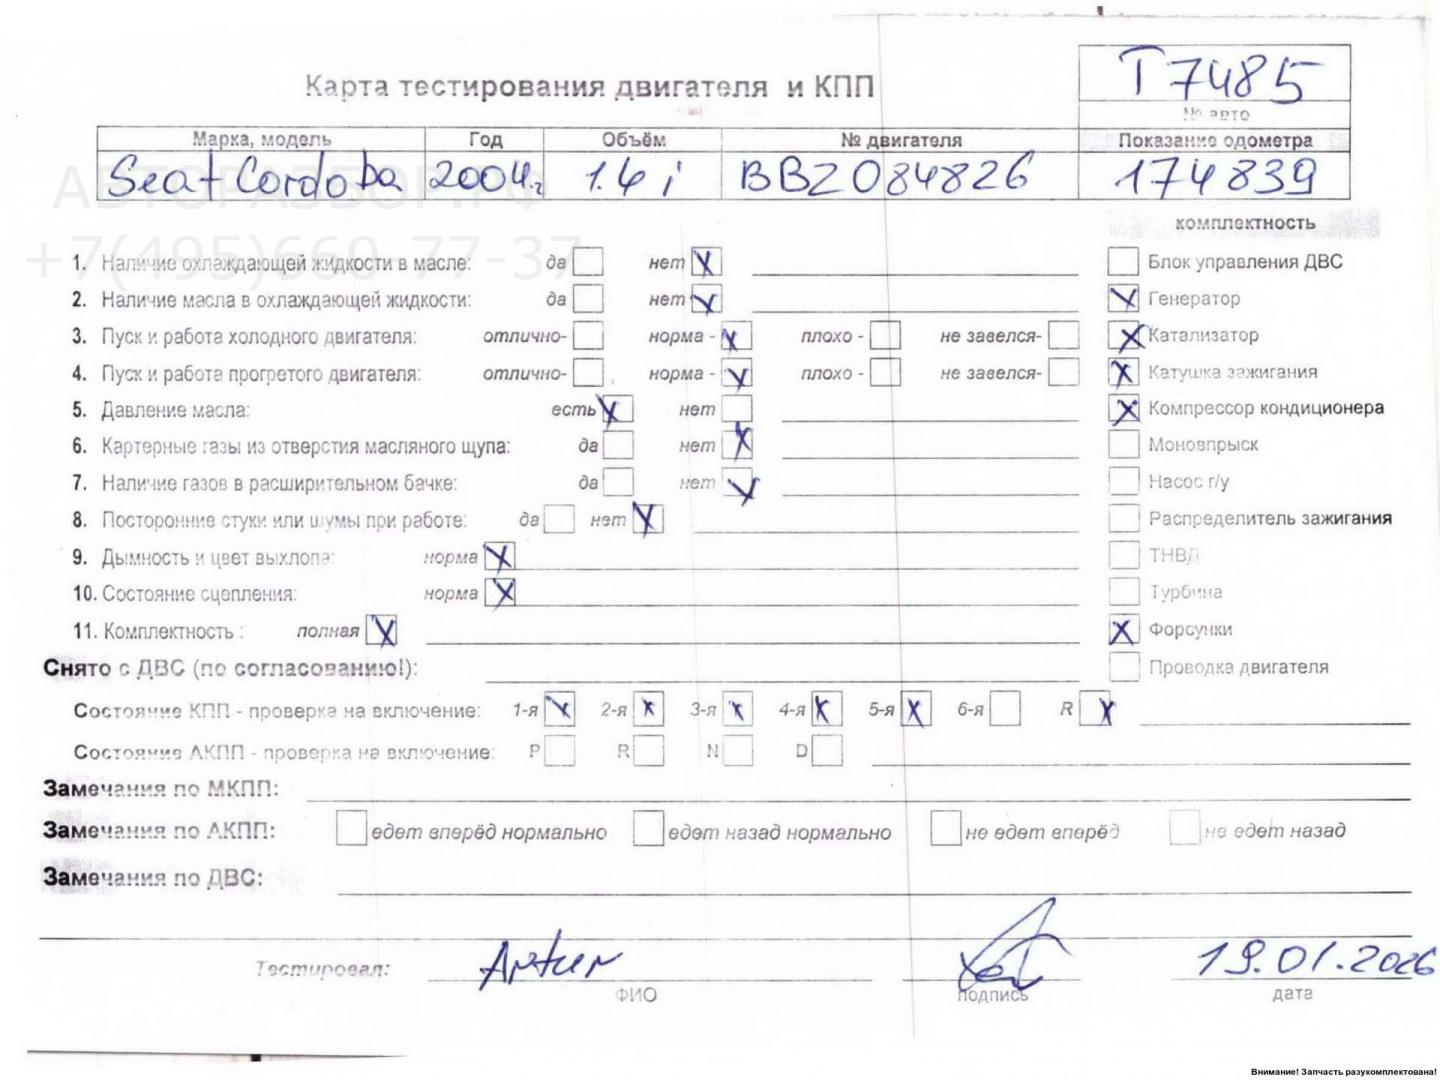 T7485
Карта тестирования двигателя и КПП
№ авто
Марка, модель Год Объём № двигателя Показание одометра
Seat Cordoba 2004г. 1.4i BBZ084826 174839
АВТОРАЗБОР.РФ
+7(495)660-77-37
комплектность
1. Наличие охлаждающей жидкости в масле: да нет X Блок управления ДВС
2. Наличие масла в охлаждающей жидкости: да нет X Генератор
3. Пуск и работа холодного двигателя: отлично- норма - X плохо - не завелся- X Катализатор
4. Пуск и работа прогретого двигателя: отлично- норма - X плохо - не завелся- X Катушка зажигания
5. Давление масла: есть X нет X Компрессор кондиционера
6. Картерные газы из отверстия масляного щупа: да нет X Моновпрыск
7. Наличие газов в расширительном бачке: да нет X Насос г/у
8. Посторонние стуки или шумы при работе: да нет X Распределитель зажигания
9. Дымность и цвет выхлопа: норма X ТНВД
10. Состояние сцепления: норма X Турбина
11. Комплектность : полная X X Форсунки
Снято с ДВС (по согласованию!): Проводка двигателя
Состояние КПП - проверка на включение: 1-я X 2-я X 3-я X 4-я X 5-я X 6-я R X
Состояние АКПП - проверка на включение: P R N D
Замечания по МКПП:
Замечания по АКПП: едет вперёд нормально едет назад нормально не едет вперёд не едет назад
Замечания по ДВС:
Тестировал: Artur 19.01.2026
ФИО подпись дата
Внимание! Запчасть разукомплектована!